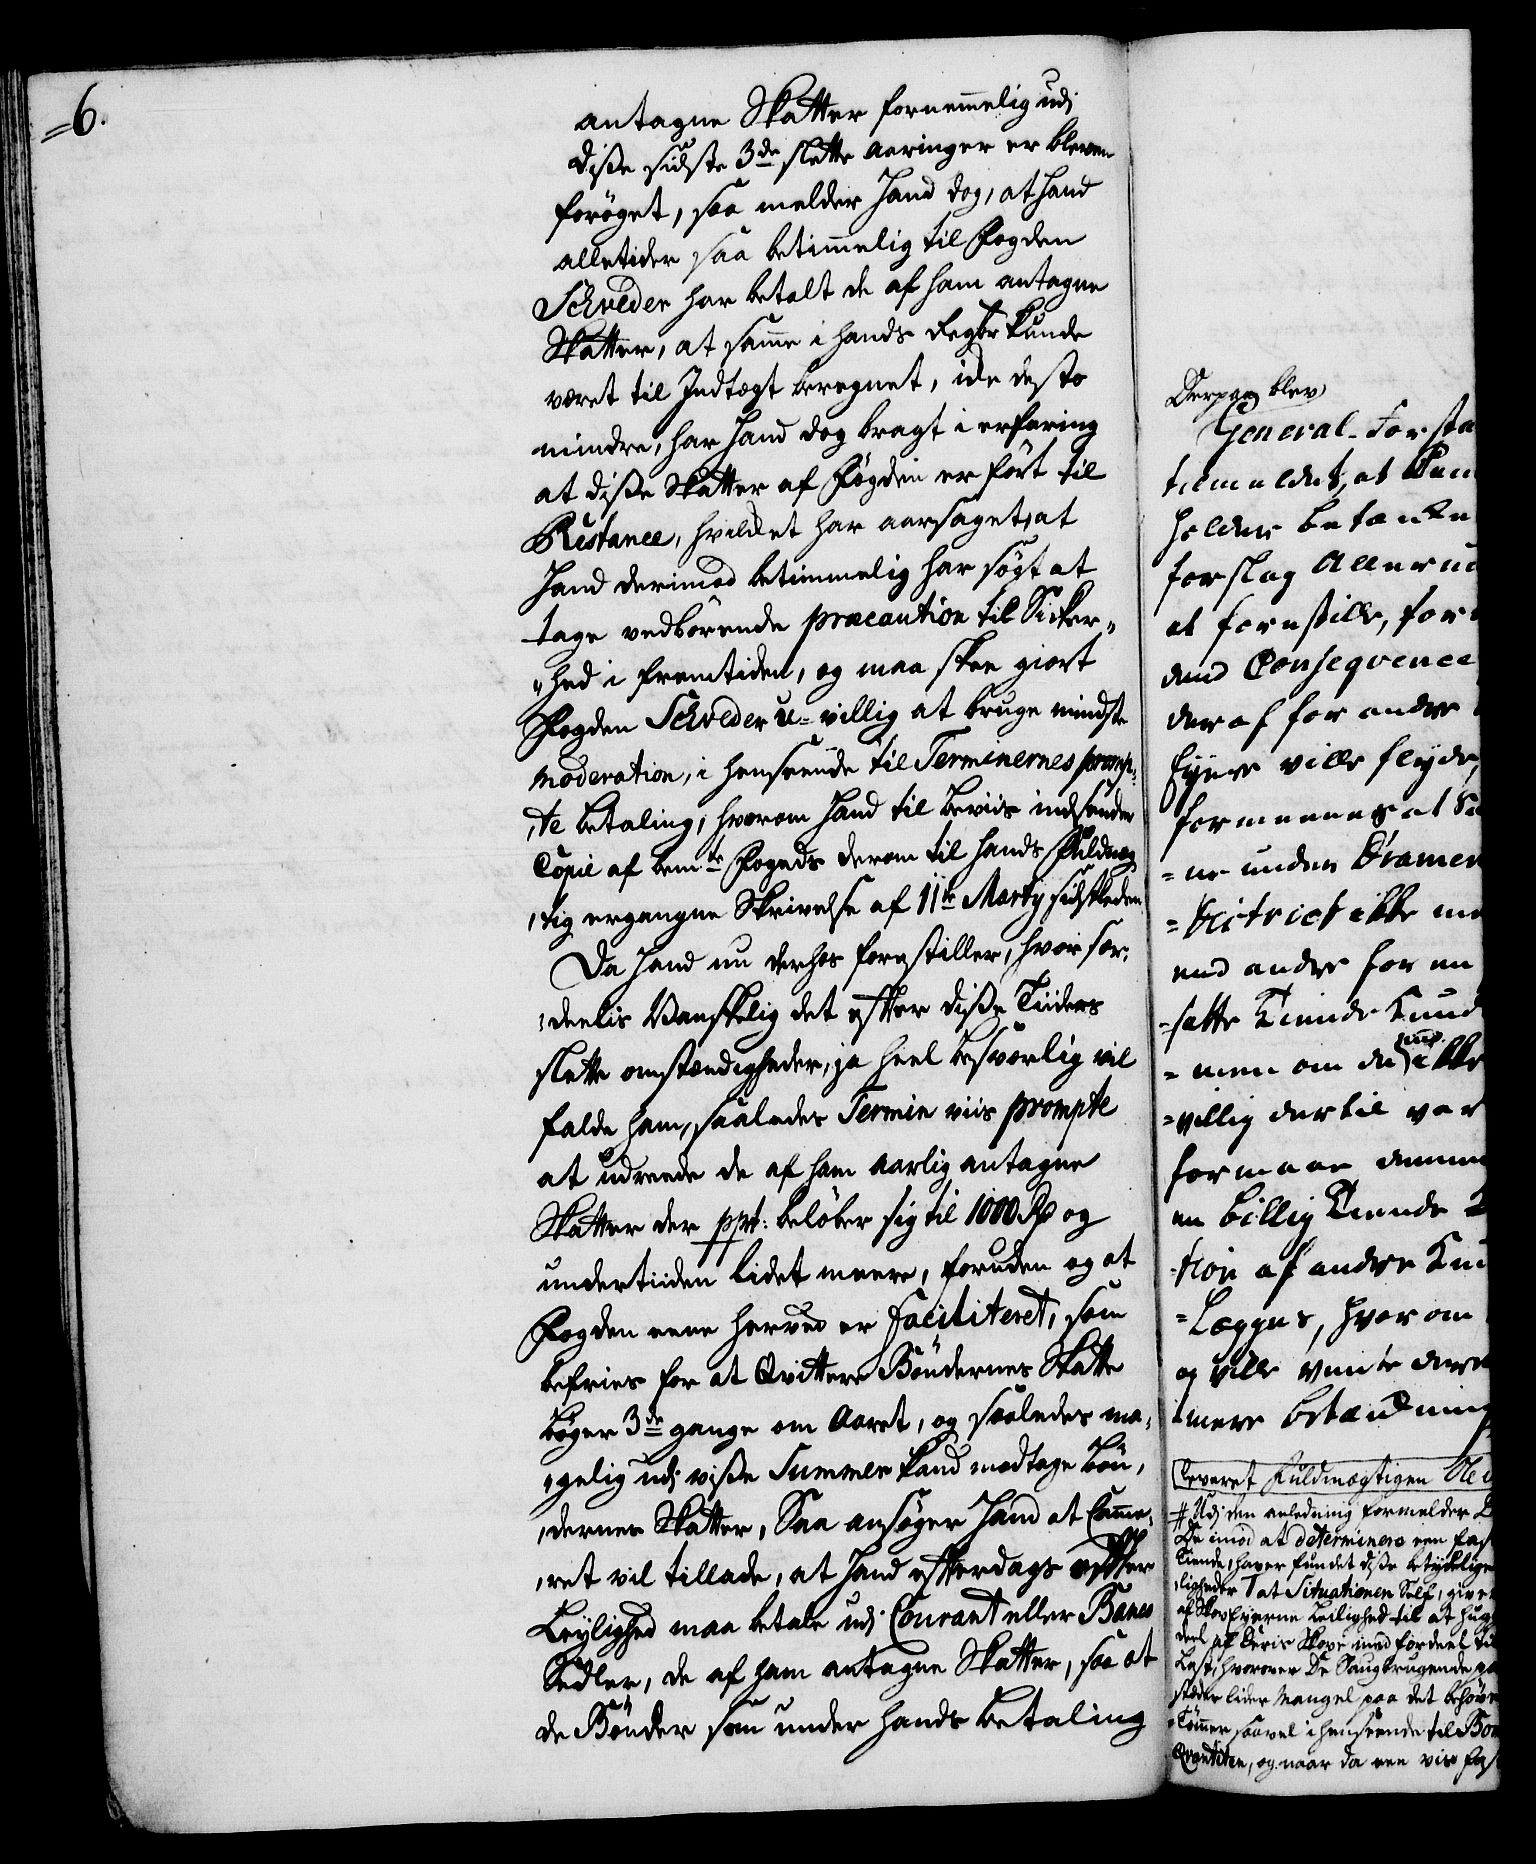 =6.
antagne Skatter fornemmelig udj
disse sidste 3de slette Aaringer er bleven
forøget, saa melder Hand dog, at Hand
alletider saa betimmelig til Fogden
Schreder har betalt de af ham antagne
Skatter, at samme i hands Regskr kunde
været til Indtægt beregnet, icke desto
mindre, har Hand dog bragt i erfaring
at disse Skatter af Fogden er ført til
Restance, hvilcket har aarsaget, at
Hand derimod betimmelig har søgt at
tage vedbørende præcaution til Sicker„
„hed i fremtiden, og maa skee giort
Fogden Schreder u-villig at bruge mindste
moderation, i henseende til Terminernes promp„
„te betaling, hvorom Hand til beviis indsender
Copie af bemte Fogeds derom til hands Fuldmæg
„tig ergangne Skrivelse af 11te Marty sidstleden
Da Hand nu derhos forestiller, hvor sær„
„deelis Vanskelig det efter disse Tiiders
slette omstændigheder, ja heel besværlig vil
falde ham, saaledes Termin viis prompte
at udreede de af ham aarlig antagne
Skatter der ppt: beløber sig til 1000 Rd og
undertiiden lidet meere, foruden og at
Fogden eene herved er faciliteret, som
befries for at Qvittere Bøndernes Skatte
bøger 3de gange om Aaret, og saaledes ma„
„gelig udj visse Summer kand modtage Bøn„
„dernes Skatter, Saa ansøger Hand at Camme„
„ret vil tillade, at Hand efterdags efter
Leylighed maa betale udj Courant eller Banco
Sedler, de af ham antagne Skatter, saa at
de Bønder som under hands betaling
Derpaa blev
General-Forsta
tilmeldet, at Cam
holder betænke
forslag Allerund
at forestille, for
den Conseqvence
deraf for andre
Eyere ville flyde,
formeenes at Sa
=ne under Dramen
=District ikke me
end andre for en
=satte Tiende kund
=men om de ikke
=villig dertil var
formaae denne
en billig Tiende
=tion af andre
=Lægges, hvorom
og ville vente der
mere betænkning
leveret Fuldmægtigen
# Udj den anledning formelder
De imod at determinere een fas
Tiende, haver fundet disse betydelige
„ligheder 1 at Situationen Self, giver
af Skov Eyerne Leilighed til at hugge
deel af deris Skove med fordeel til
Last, hvorover De Saugbrugende paa
steder lider Mangel paa det behøve
Tømmer saavel i henseende til Bon
Qvantiten, og naar da een vis fas